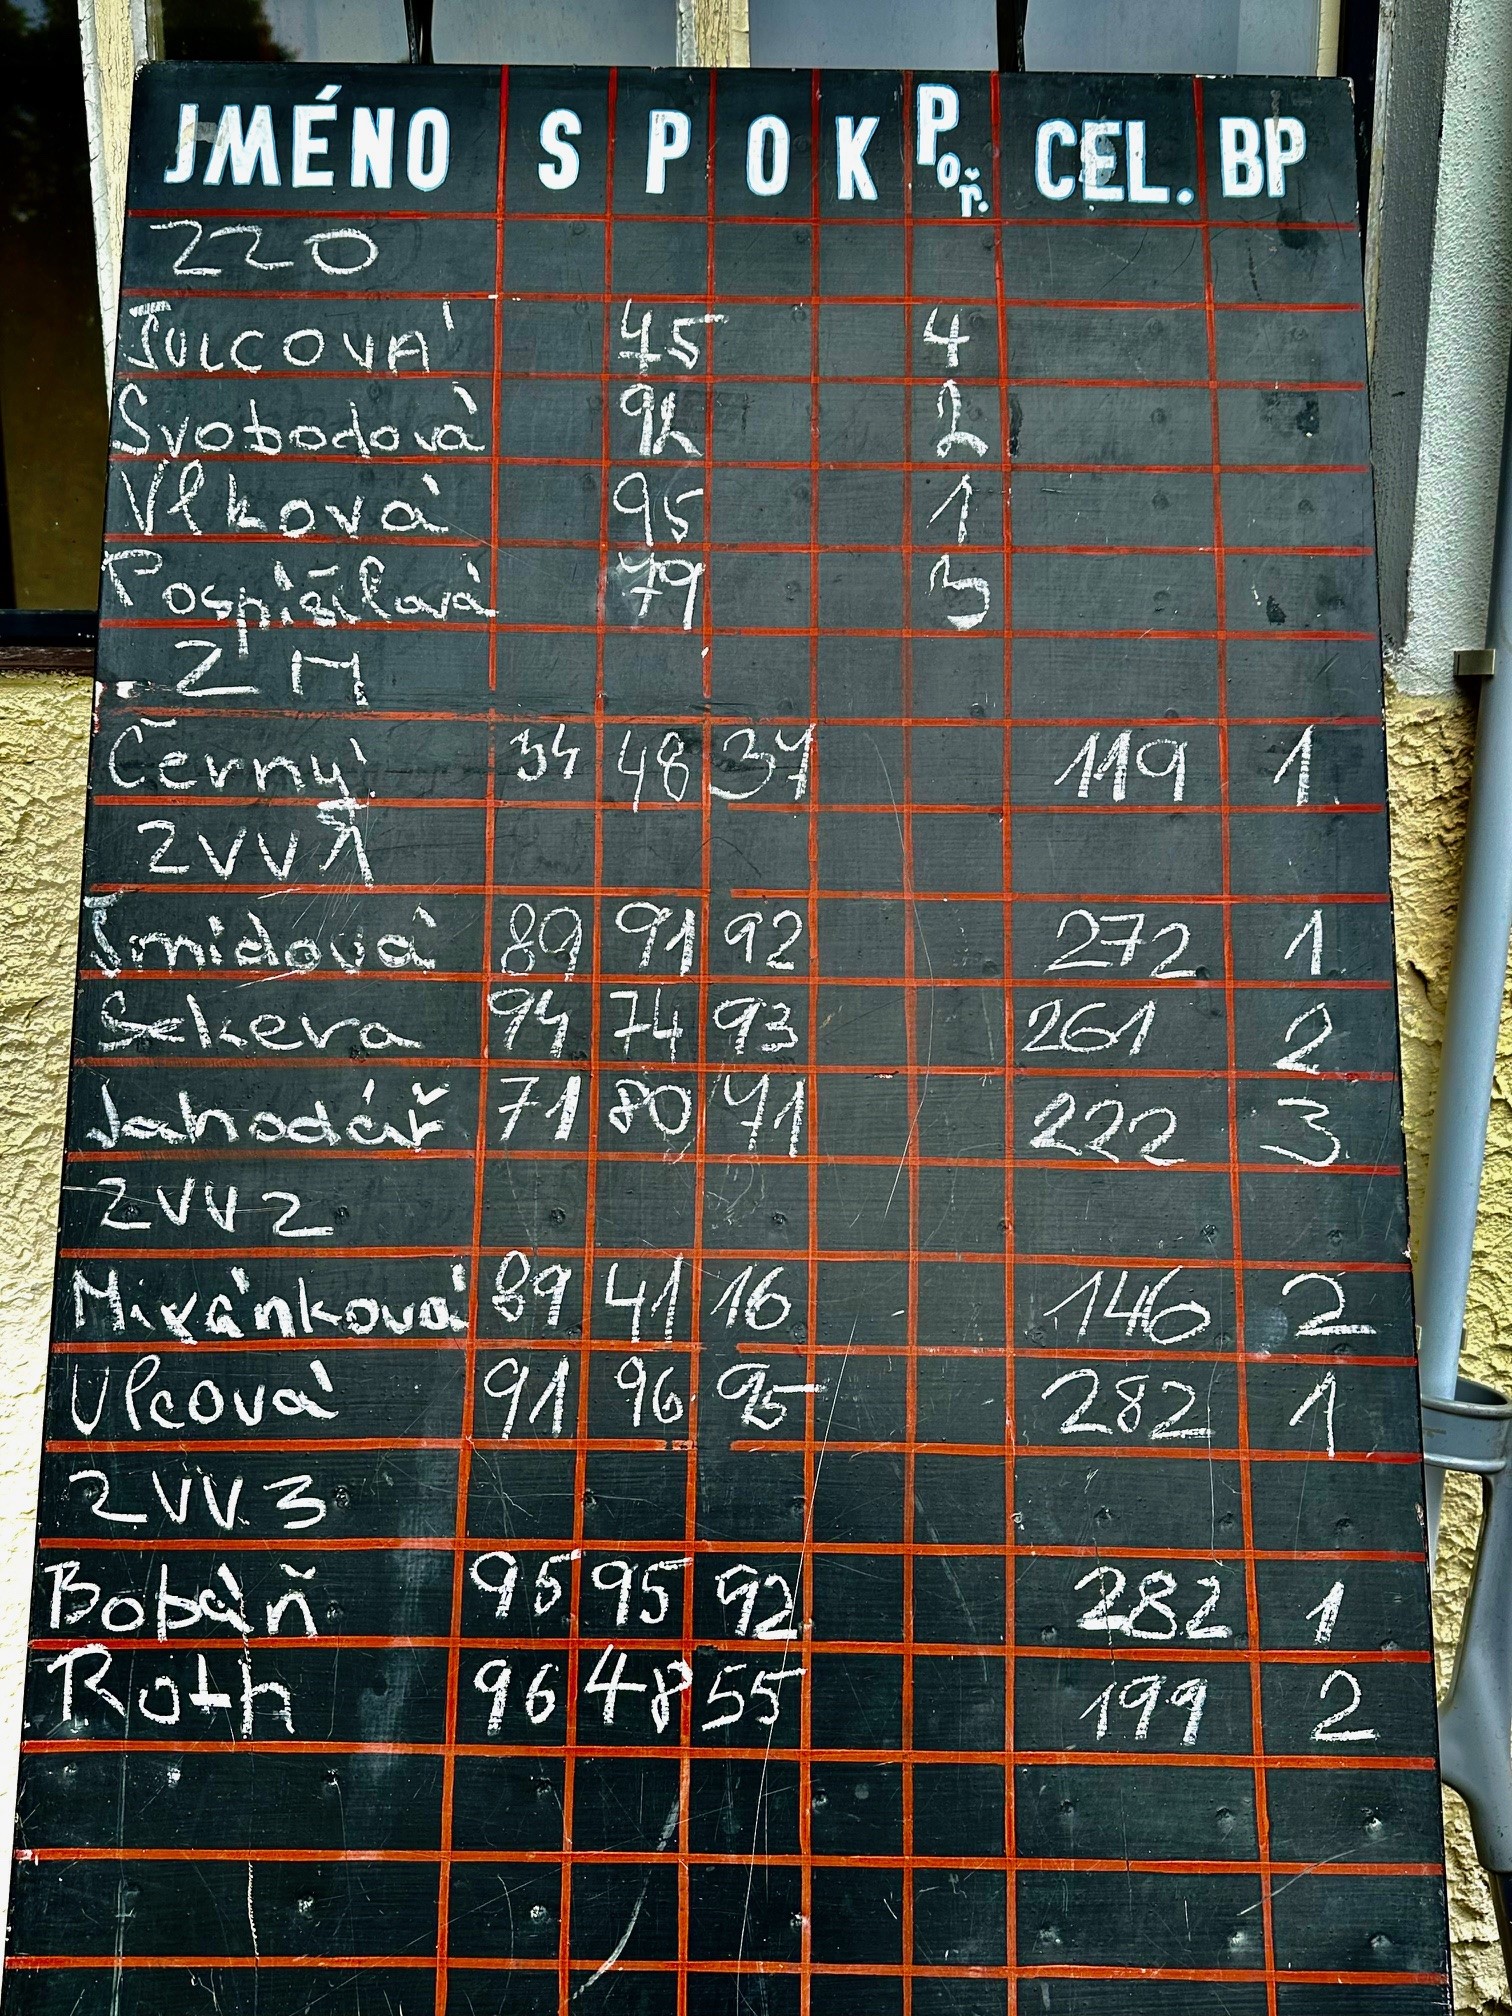 JMÉNO S P O K Poř. CEL. BP
ZZO
Šulcová 45 4
Svobodová 92 2
Vlková 95 1
Pospíšilová 79 3
ZM
Černý 34 48 37 119 1.
ZVV1
Šmídová 89 91 92 272 1
Sekera 94 74 93 261 2
Jahodář 71 80 71 222 3
ZVV2
Mixánková 89 41 16 146 2
Vlcová 91 96 95 282 1
ZVV3
Bobáň 95 95 92 282 1
Roth 96 48 55 199 2